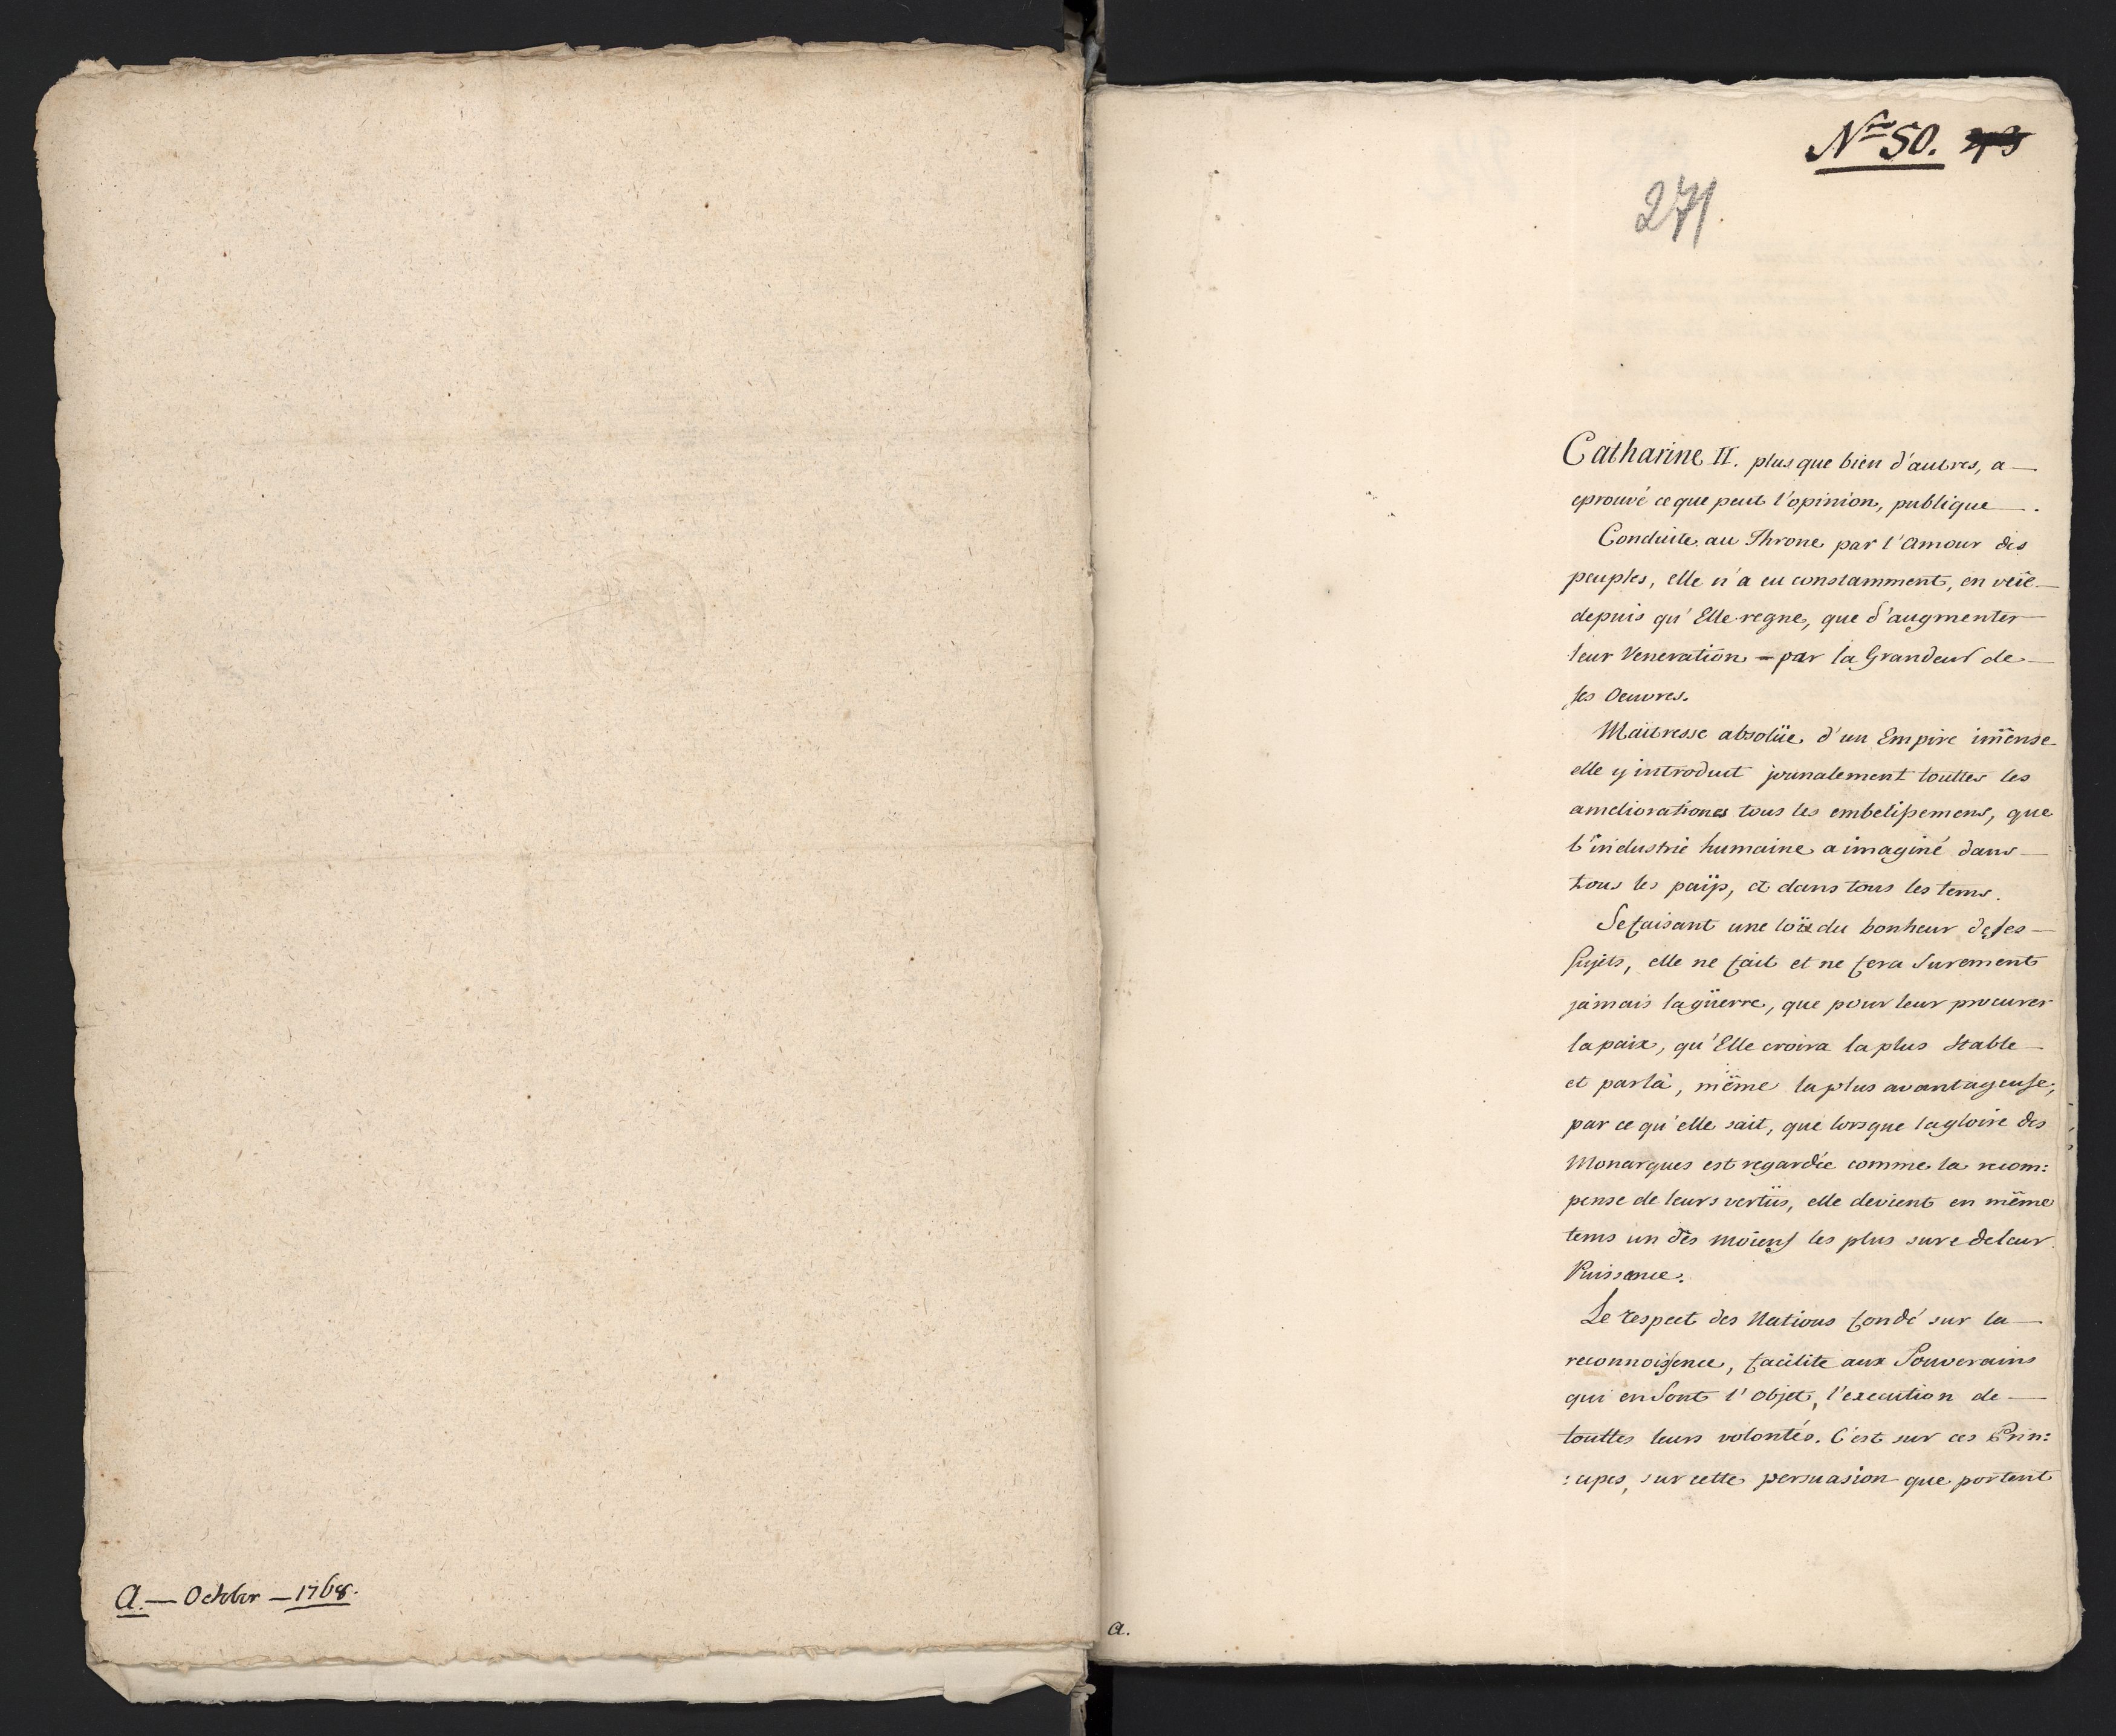 a. — October — 1768.
Nro 50.
271.
Catharine II. plus que bien d'autres, a —
eprouvé ce que peut l'opinion, publique — .
Conduite au Throne par l'Amour des
peuples, elle n'a eu constamment, en veüe —
depuis qu'Elle regne, que d'augmenter —
leur Veneration — par la Grandeur de —
ses Oeuvres.
Maitresse absolüe d'un Empire im̄ense
elle y introduit journalement touttes les
ameliorationes tous les embelissemens, que
l'industrie humaine a imaginé dans —
tous les païs, et dans tous les tems.
Se faisant une loix du bonheur de ses —
Sujets, elle ne fait et ne fera Surement
jamais la güerre, que pour leur procurer
la paix, qu'Elle croira la plus Stable —
et par là, même la plus avantageuse;
par ce qu'elle sait, que lorsque la gloire des
Monarques est regardée comme la recom:
pense de leurs vertüs, elle devient en même
tems un des moiens les plus sure de leur
Puissance.
Le respect des Nations fondé sur la —
reconnoissence, facilite aux Souverains
qui en Sont l'Objet, l'execution de —
touttes leurs volontés. C'est sur ces Prin:
:cipes, sur cette persuasion que portent
a.